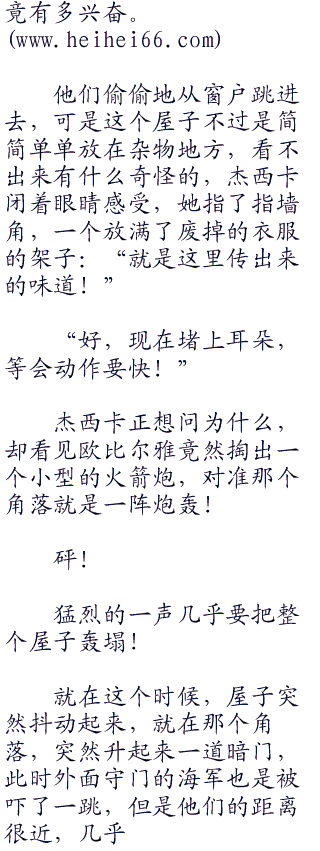 竟有多兴奋。
(www.heihei66.com)
他们偷偷地从窗户跳进
去，可是这个屋子不过是简
简单单放在杂物地方，看不
出来有什么奇怪的，杰西卡
闭着眼睛感受，她指了指墙
角，一个放满了废掉的衣服
的架子：“就是这里传出来
的味道！”
“好，现在堵上耳朵，
等会动作要快！”
杰西卡正想问为什么，
却看见欧比尔雅竟然掏出一
个小型的火箭炮，对准那个
角落就是一阵炮轰！
砰！
猛烈的一声几乎要把整
个屋子轰塌！
就在这个时候，屋子突
然抖动起来，就在那个角
落，突然升起来一道暗门，
此时外面守门的海军也是被
吓了一跳，但是他们的距离
很近，几乎